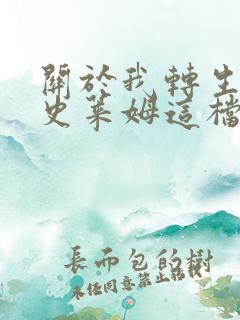 關於我轉生
史萊姆這檔
長而包的樹
未任同意禁止轉載